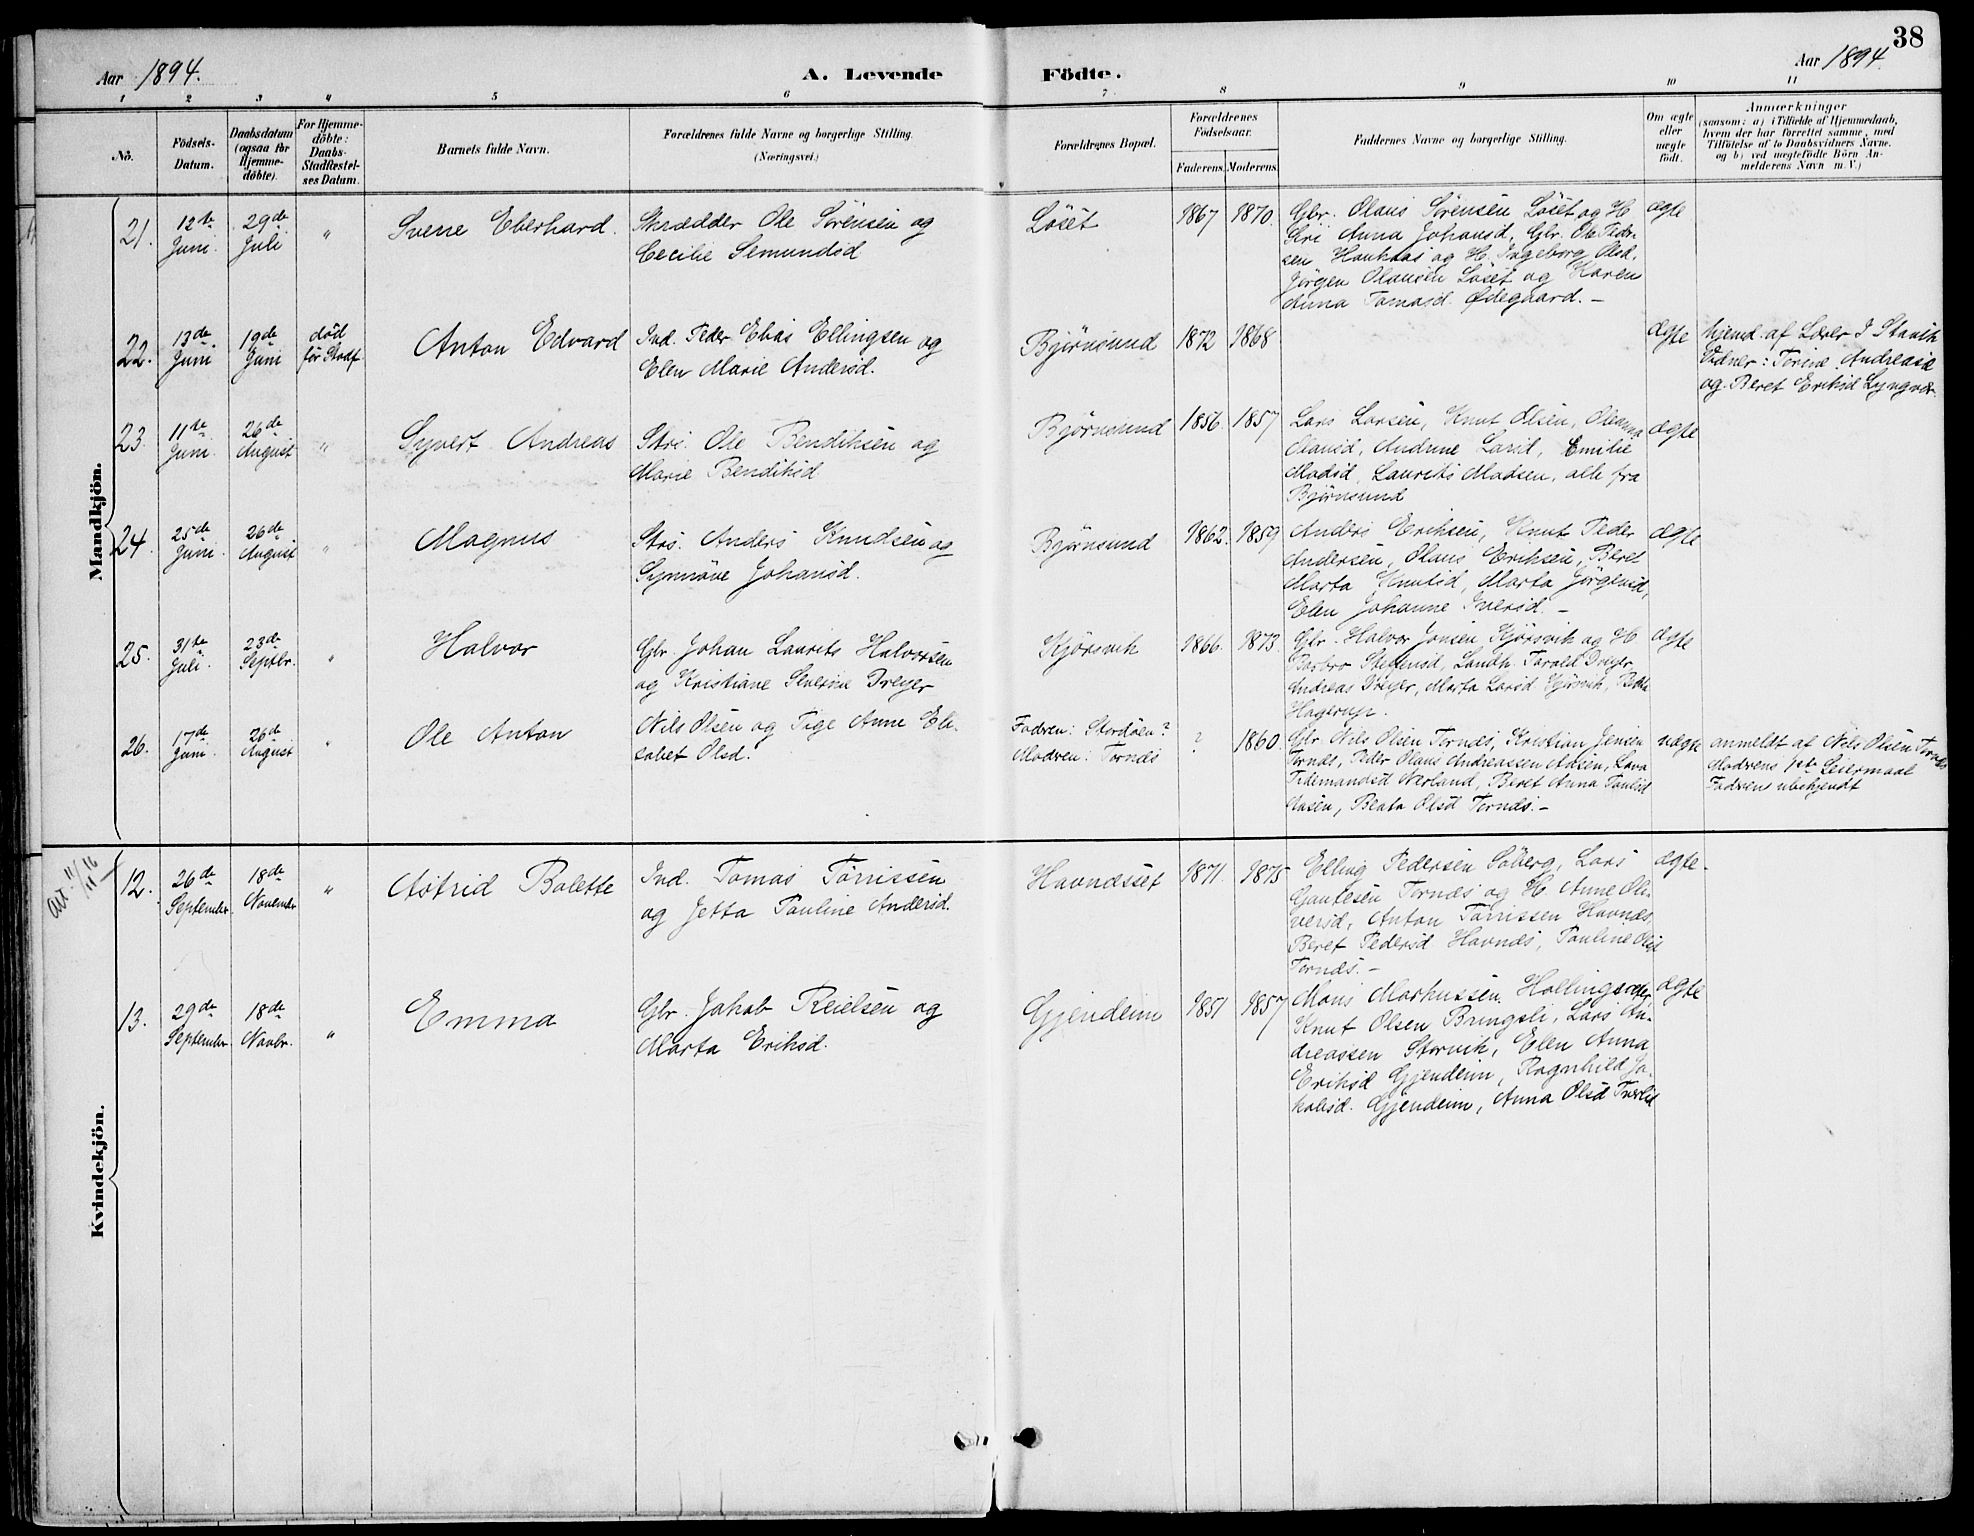 38
Aar 1894.
A. Levende Födte.
Aar 1894.
1 2 3 4 5 6 7 8 9 10 11
No.
Födsels-
Datum.
Daabsdatum
(ogsaa for
Hjemme-
döbte).
For Hjemme-
döbte:
Daabs-
Stadfæstel-
ses Datum.
Barnets fulde Navn.
Forældrenes fulde Navne og borgerlige Stilling.
(Næringsvei.)
Forældrenes Bopæl.
Forældrenes
Födselsaar.
Faderens. Moderens.
Faddernes Navne og borgerlige Stilling.
Om ægte
eller
uægte
födt.
Anmærkninger
(saasom: a) i Tilfælde af Hjemmedaab,
hvem der har forrettet samme, med
Tilföielse af to Daabsvidners Navne,
og b) ved uegtefödte Börn An-
melderens Navn m. V.)
Mandkjön.
21.
12te
Juni
29de
Juli
"
Svene Eberhard.
Skrædder Ole Sörensen og
Cecilie Semundsd
Löset
1867 1870.
Gbr. Olaus Sörensen Löset og H
Siri Anna Johansd, Gbr. Ole Peder-
sen Haukaas og H. Ingeborg Olsd.
Jörgen Olausen Löset og Karen
Anna Tomasd. Ødegaard. –
ægte
22.
13de
Juni
19de
Juni
död
før Stadf.
Anton Edvard
Ind. Peder Elias Ellingsen og
Elen Marie Andersd.
Bjørnsund
1872 1868
ægte
hjemd. af Lærer I Stavik
Vidner: Andreasd
og Beret Eriksd Lyngvær.
23.
11te
Juni
26de
August
"
Syvert Andreas
Stri. Ole Bendiksen og
Marie Bendiksd
Bjørnsund
1856. 1857
Lars Larsen, Knut Olsen, Oleanna
Olausd, Andrine Larsd, Emilie
Madsd, Laurits Madsen, alle fra
Bjørnsund
ægte
24.
25de
Juni
26de
August
"
Magnus
Strs. Anders Knudsen og
Synnöve Johansd.
Bjørnsund
1862. 1859
Anders Eriksen, Knut Peder
Andersen, Olaus Eriksen, Beret
Marta Knutsd, Marta Jörgensd,
Elen Johanne Iversd. –
ægte
25.
31te
Juli
23de
Septbr.
"
Halvor
Gbr. Johan Laurits Halvorsen
og Kristiane Severine Dreyer
Kjörsvik
1866. 1873.
Gbr. Halvor Jonsen Kjörsvik og H
Barbro Steffensd, Landh. Tarald Dreyer
Andreas Dreyer, Marta Larsd Kjörsvik,
Hagerup.
ægte
26.
17de
Juni
26de
August
"
Ole Anton
Nils Olsen og Pige Anne Eli-
sabet Olsd.
Fadren: Stordöen?
Modren: Tornes
? 1860.
Gbr. Nils Olsen Tornes, Kristian Jensen
Tornes, Peder Olaus Andreassen Aasen, Lava
Tidemandsd Nerland, Beret Anna Paulsd
Aasen, Beata Olsd Tornes. –
uægte
anmeldt af Nils Olsen Tornes
Modrens 1ste Leiermaal
Fadrens ubekjendt
Kvindekjön.
att. 11/11 16
12.
26de
September
18de
November
"
Astrid Bolette
Ind. Tomas Torrissen
og Jetta Pauline Andersd.
Havnesset
1871. 1875
Elling Pedersen Söberg, Lars
Gautesen Tornes og H. Anne Oli-
versd, Anton Torrissen Havnes,
Beret Pedersd Havnes, Pauline Olsd
Tornes. –
ægte.
13.
29de
September
18de
Novbr.
"
Emma
Gbr. Jakob Reielsen og
Marta Eriksd.
Gjendeim
1851 1857
Mons Markussen Hollingsæter
Knut Olsen Bringsli, Lars An-
dreassen Storvik, Elen Anna
Eriksd Gjendeim, Ragnhild Ja-
kobsd. Gjendeim, Anna Olsd Tverlid
ægte